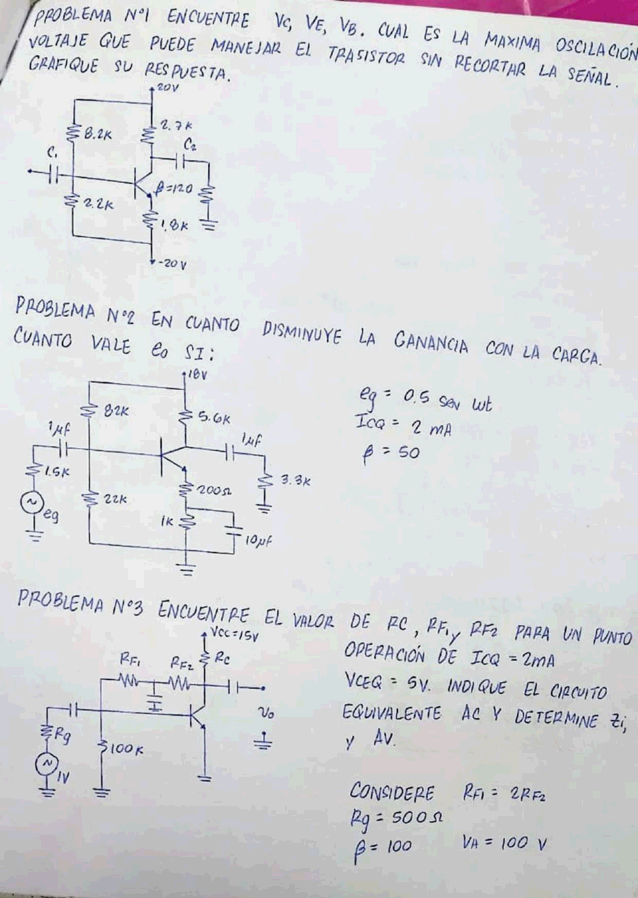 PROBLEMA N°1 ENCUENTRE VC, VE, VB. CUAL ES LA MAXIMA OSCILACIÓN
VOLTAJE QUE PUEDE MANEJAR EL TRASISTOR SIN RECORTAR LA SEÑAL.
GRAFIQUE SU RESPUESTA.
20V
8.2K
2.7K
C1
C2
β=120
2.2K
1.8K
-20V
PROBLEMA N°2 EN CUANTO DISMINUYE LA GANANCIA CON LA CARGA.
CUANTO VALE eo SI:
18V
eg = 0.5 sen wt
82K
5.6K
ICQ = 2 mA
1μF
1μF
β = 50
1.5K
3.3K
200Ω
22K
eg
1K
10μF
PROBLEMA N°3 ENCUENTRE EL VALOR DE RC, RF1 y RF2 PARA UN PUNTO
VCC=15V
OPERACIÓN DE ICQ = 2mA
RF1
RF2
RC
VCEQ = 5V. INDIQUE EL CIRCUITO
EQUIVALENTE AC Y DETERMINE Zi,
Vo
Y AV.
Rg
100K
1V
CONSIDERE RF1 = 2RF2
Rg = 500Ω
β = 100 VA = 100 V